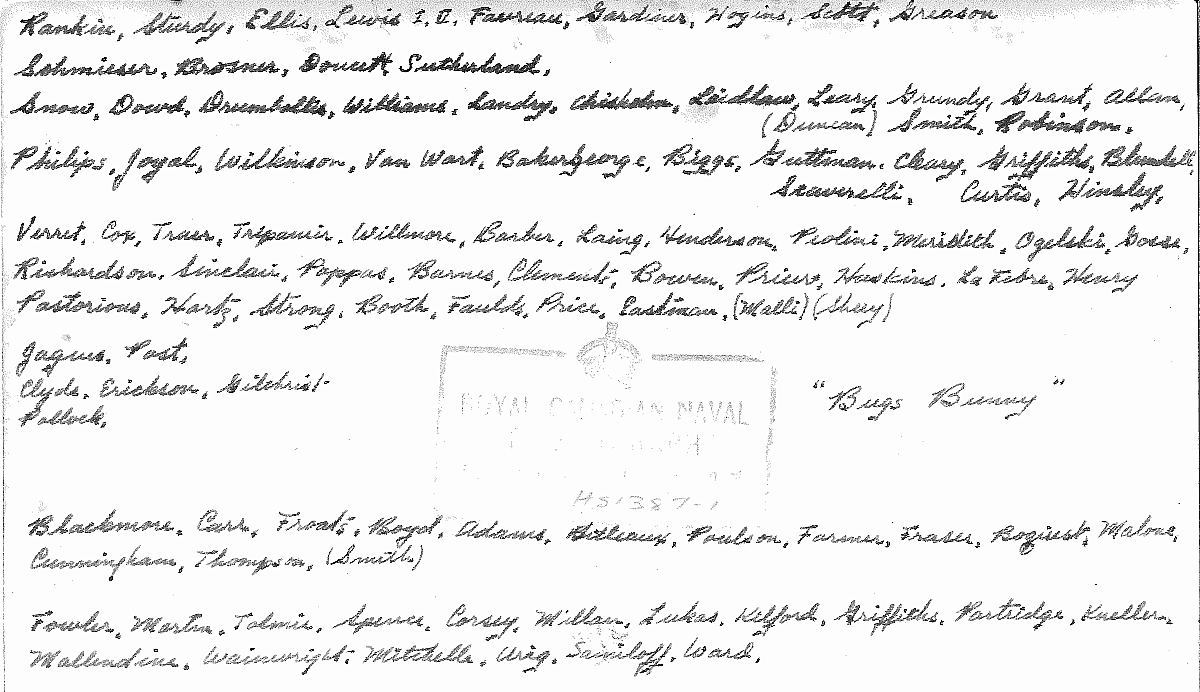 Rankin, Sturdy, Ellis, Lewis I, II, Favreau, Gardiner, Hogins, Scott, Greason
Schmieser, Brosner, Doucett, Sutherland,
Snow, Dowd, Drumbolis, Williams, Landry, Chisholm, Laidlaw, Leary, Grundy, Grant, Allan,
(Duncan) Smith, Robinson,
Philips, Joyal, Wilkinson, Van Wart, Baker, George, Biggs, Guttman, Cleary, Griffiths, Blundell,
Curtis, Hinsley,
Verret, Cox, Traer, Willmore, Barber, Laing, Henderson, Piolini, Meridith, Ogelski, Gosse,
Richardson, Sinclair, Pappas, Barnes, Clements, Bowen, Haskins, La Febre, Henry
Pastorious, Hartz, Strong, Booth, Faulds, Price, Eastman, (Malli)
Post,
Clyde, Erickson, Gilchrist
"Bugs Bunny"
Pollock,
ROYAL CANADIAN NAVAL
HS 1387-1
Blackmore, Carr, Froats, Boyd, Adams, Poulson, Farmer, Fraser, Boquist, Malone,
Cunningham, Thompson, (Smith)
Fowler, Martin, Tolmie, Spence, Corsey, Millan, Lukas, Kilford, Griffiths, Partridge, Kneller,
Mallendine, Wainwright, Mitchelle, Samiloff, Ward,